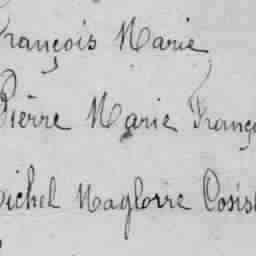 François Marie
Pierre Marie Franço
Michel Magloire